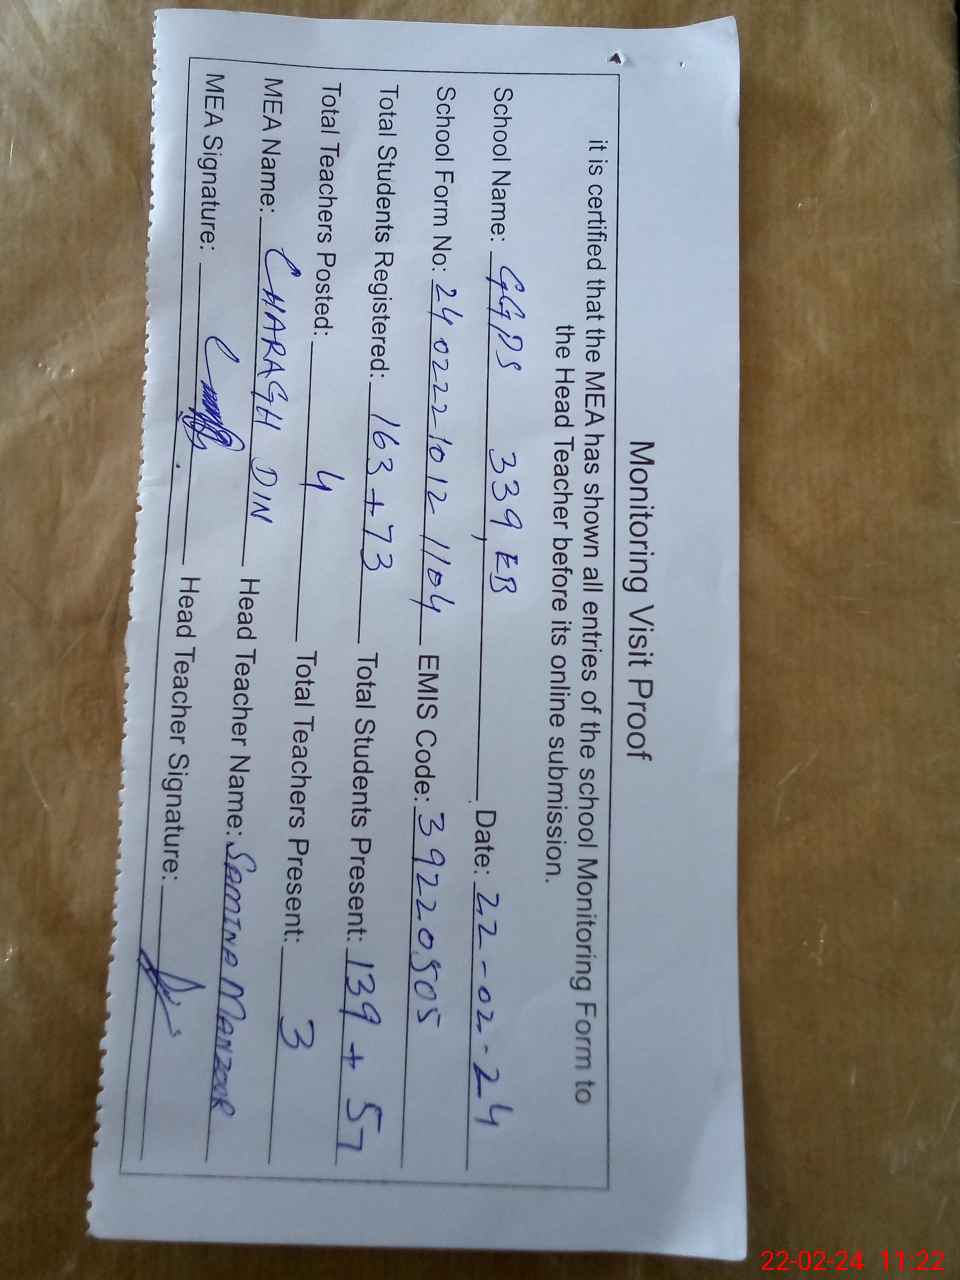 Monitoring Visit Proof
it is certified that the MEA has shown all entries of the school Monitoring Form to
the Head Teacher before its online submission.
School Name: GGPS 339, EB Date: 22-02-24
School Form No: 240222101211104 EMIS Code: 39220505
Total Students Registered: 163+73 Total Students Present: 139 + 57
Total Teachers Posted: 4 Total Teachers Present: 3
MEA Name: CHARAGH DIN Head Teacher Name: SAMINA MANZOOR
MEA Signature: Head Teacher Signature:
22-02-24 11:22